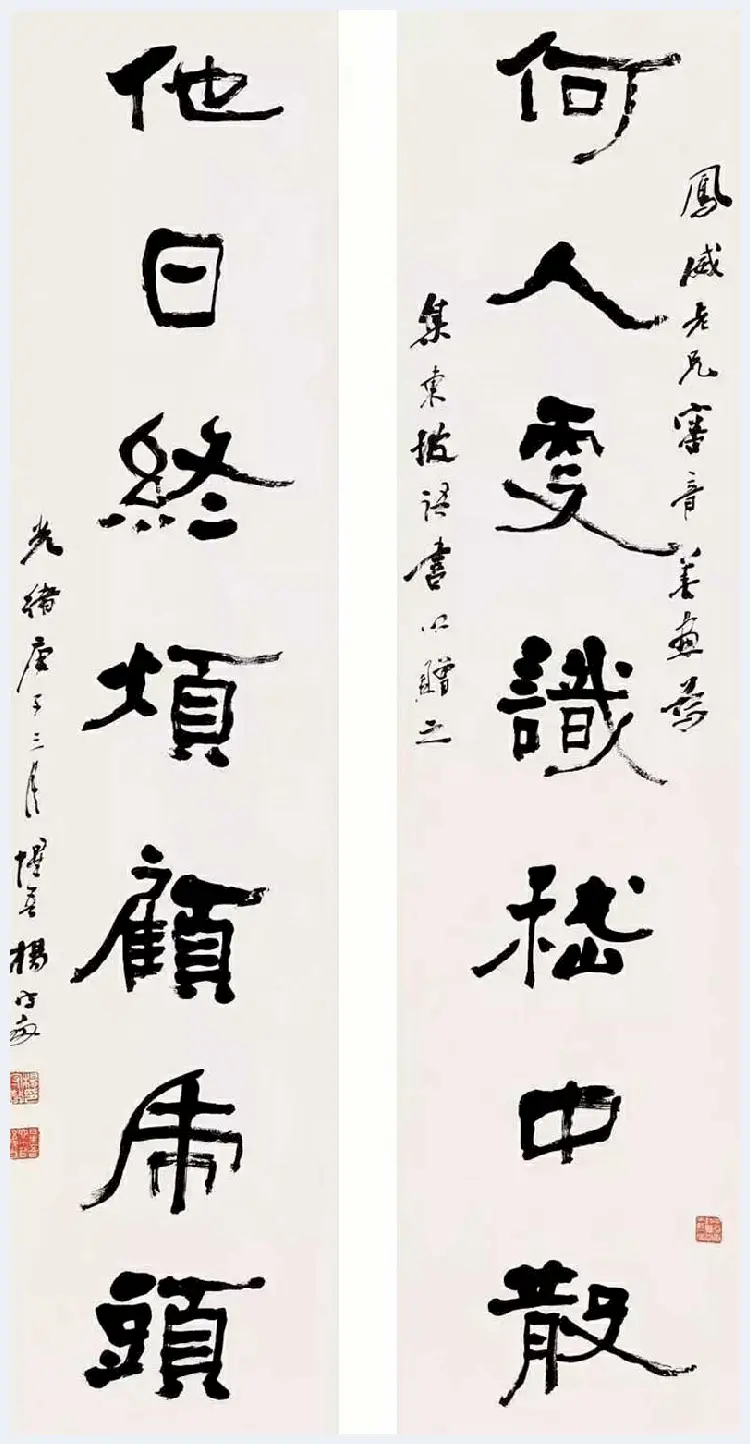 鳳威老兄審音善畫爲
何人更識嵇中散
集東坡語書以贈之
他日終煩顧虎頭
光緒庚子三月惺吾楊守敬